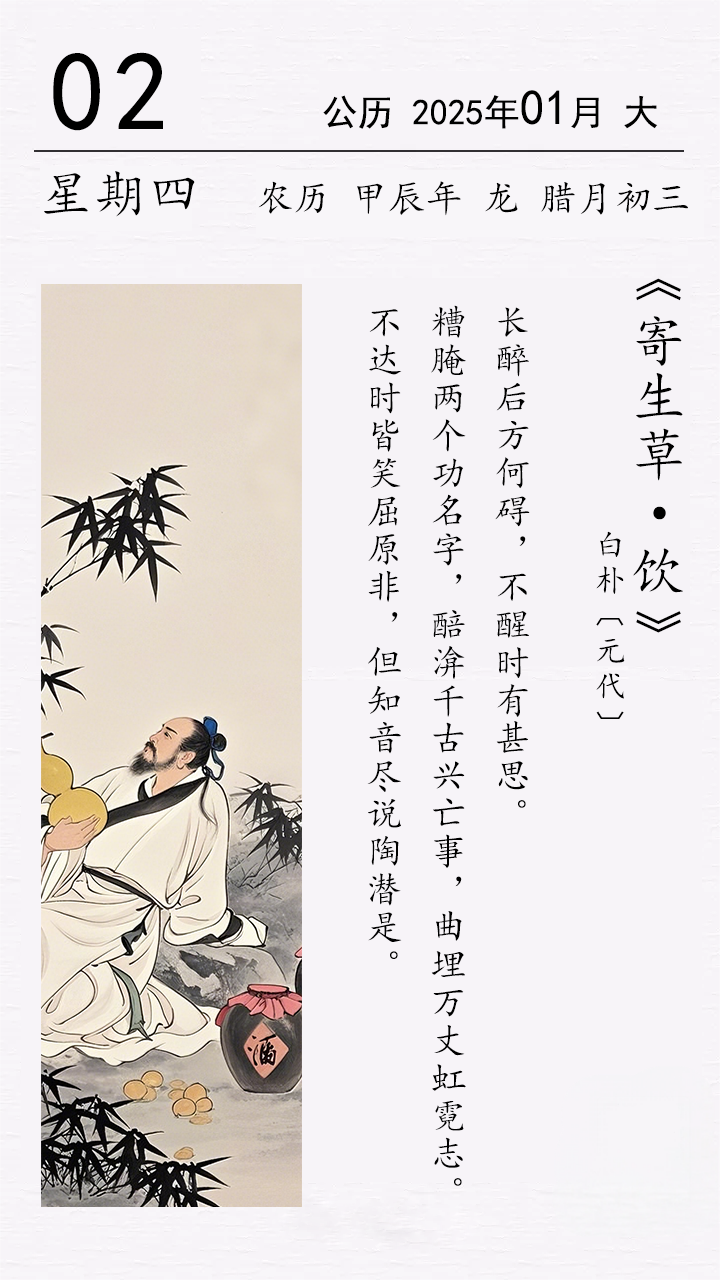 02
公历 2025年01月 大
星期四
农历 甲辰年 龙 腊月初三
《寄生草·饮》
白朴〔元代〕
长醉后方何碍，不醒时有甚思。
糟腌两个功名字，醅渰千古兴亡事，曲埋万丈虹霓志。
不达时皆笑屈原非，但知音尽说陶潜是。
酒